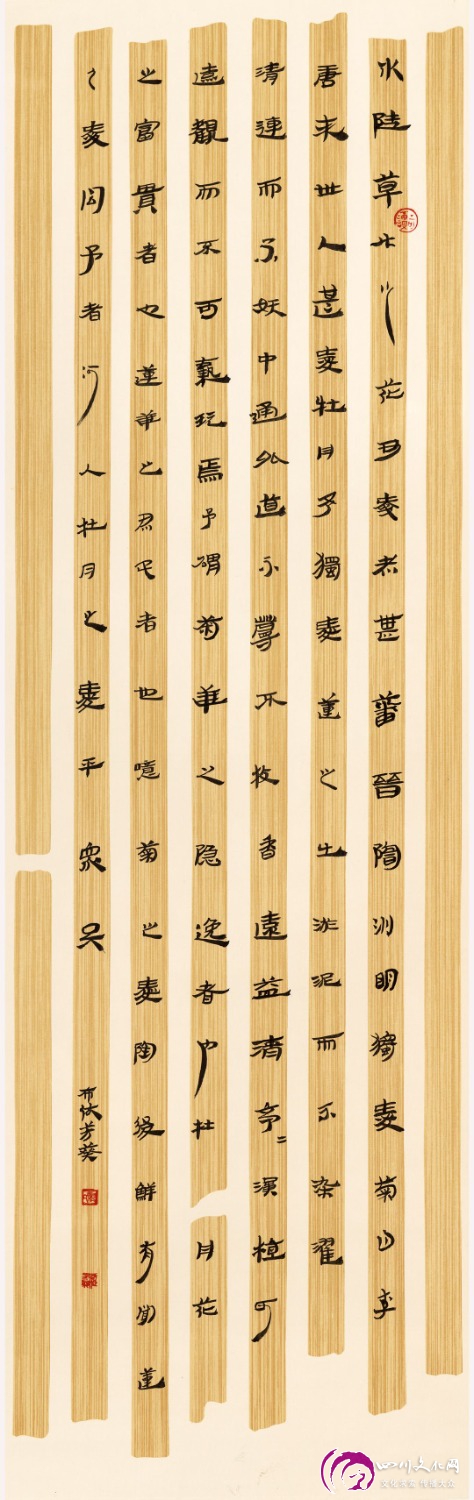 水陸草木之花可愛者甚蕃晉陶渊明獨愛菊自李
唐来世人甚愛牡丹予獨愛蓮之出淤泥而不染濯
清連而不妖中通外直不蔓不枝香遠益清亭二淨植可
遠觀而不可褻玩焉予謂菊華之隐逸者也牡丹花
之富貴者也蓮華之君子者也噫菊之愛陶後鮮有聞蓮
之愛同予者何人牡丹之愛乎衆矣
布依芳葵
四川文化网